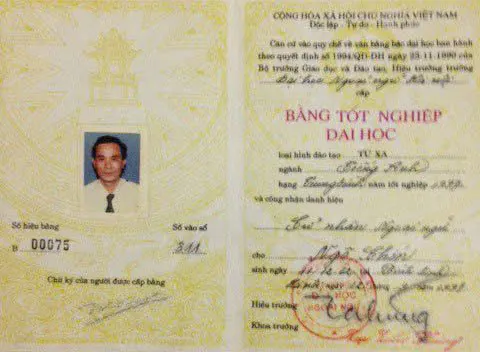 Số hiệu bằng
Số vào sổ
B 00075
311
Chữ ký của người được cấp bằng
CỘNG HÒA XÃ HỘI CHỦ NGHĨA VIỆT NAM
Độc lập - Tự do - Hạnh phúc
Căn cứ vào quy chế về văn bằng bậc đại học ban hành
theo quyết định số 1994/QĐ-ĐH ngày 23-11-1990 của
Bộ trưởng Giáo dục và Đào tạo, Hiệu trưởng trường
Đại học Ngoại ngữ Hà Nội
cấp
BẰNG TỐT NGHIỆP
ĐẠI HỌC
loại hình đào tạo TỪ XA
ngành Tiếng Anh
hạng Trung bình năm tốt nghiệp
và công nhận danh hiệu
Cử nhân Ngoại ngữ
cho Ngô
sinh ngày tại Bình Định
Hà Nội, ngày
Hiệu trưởng
Khoa trưởng
ĐẠI HỌC
NGOẠI NGỮ